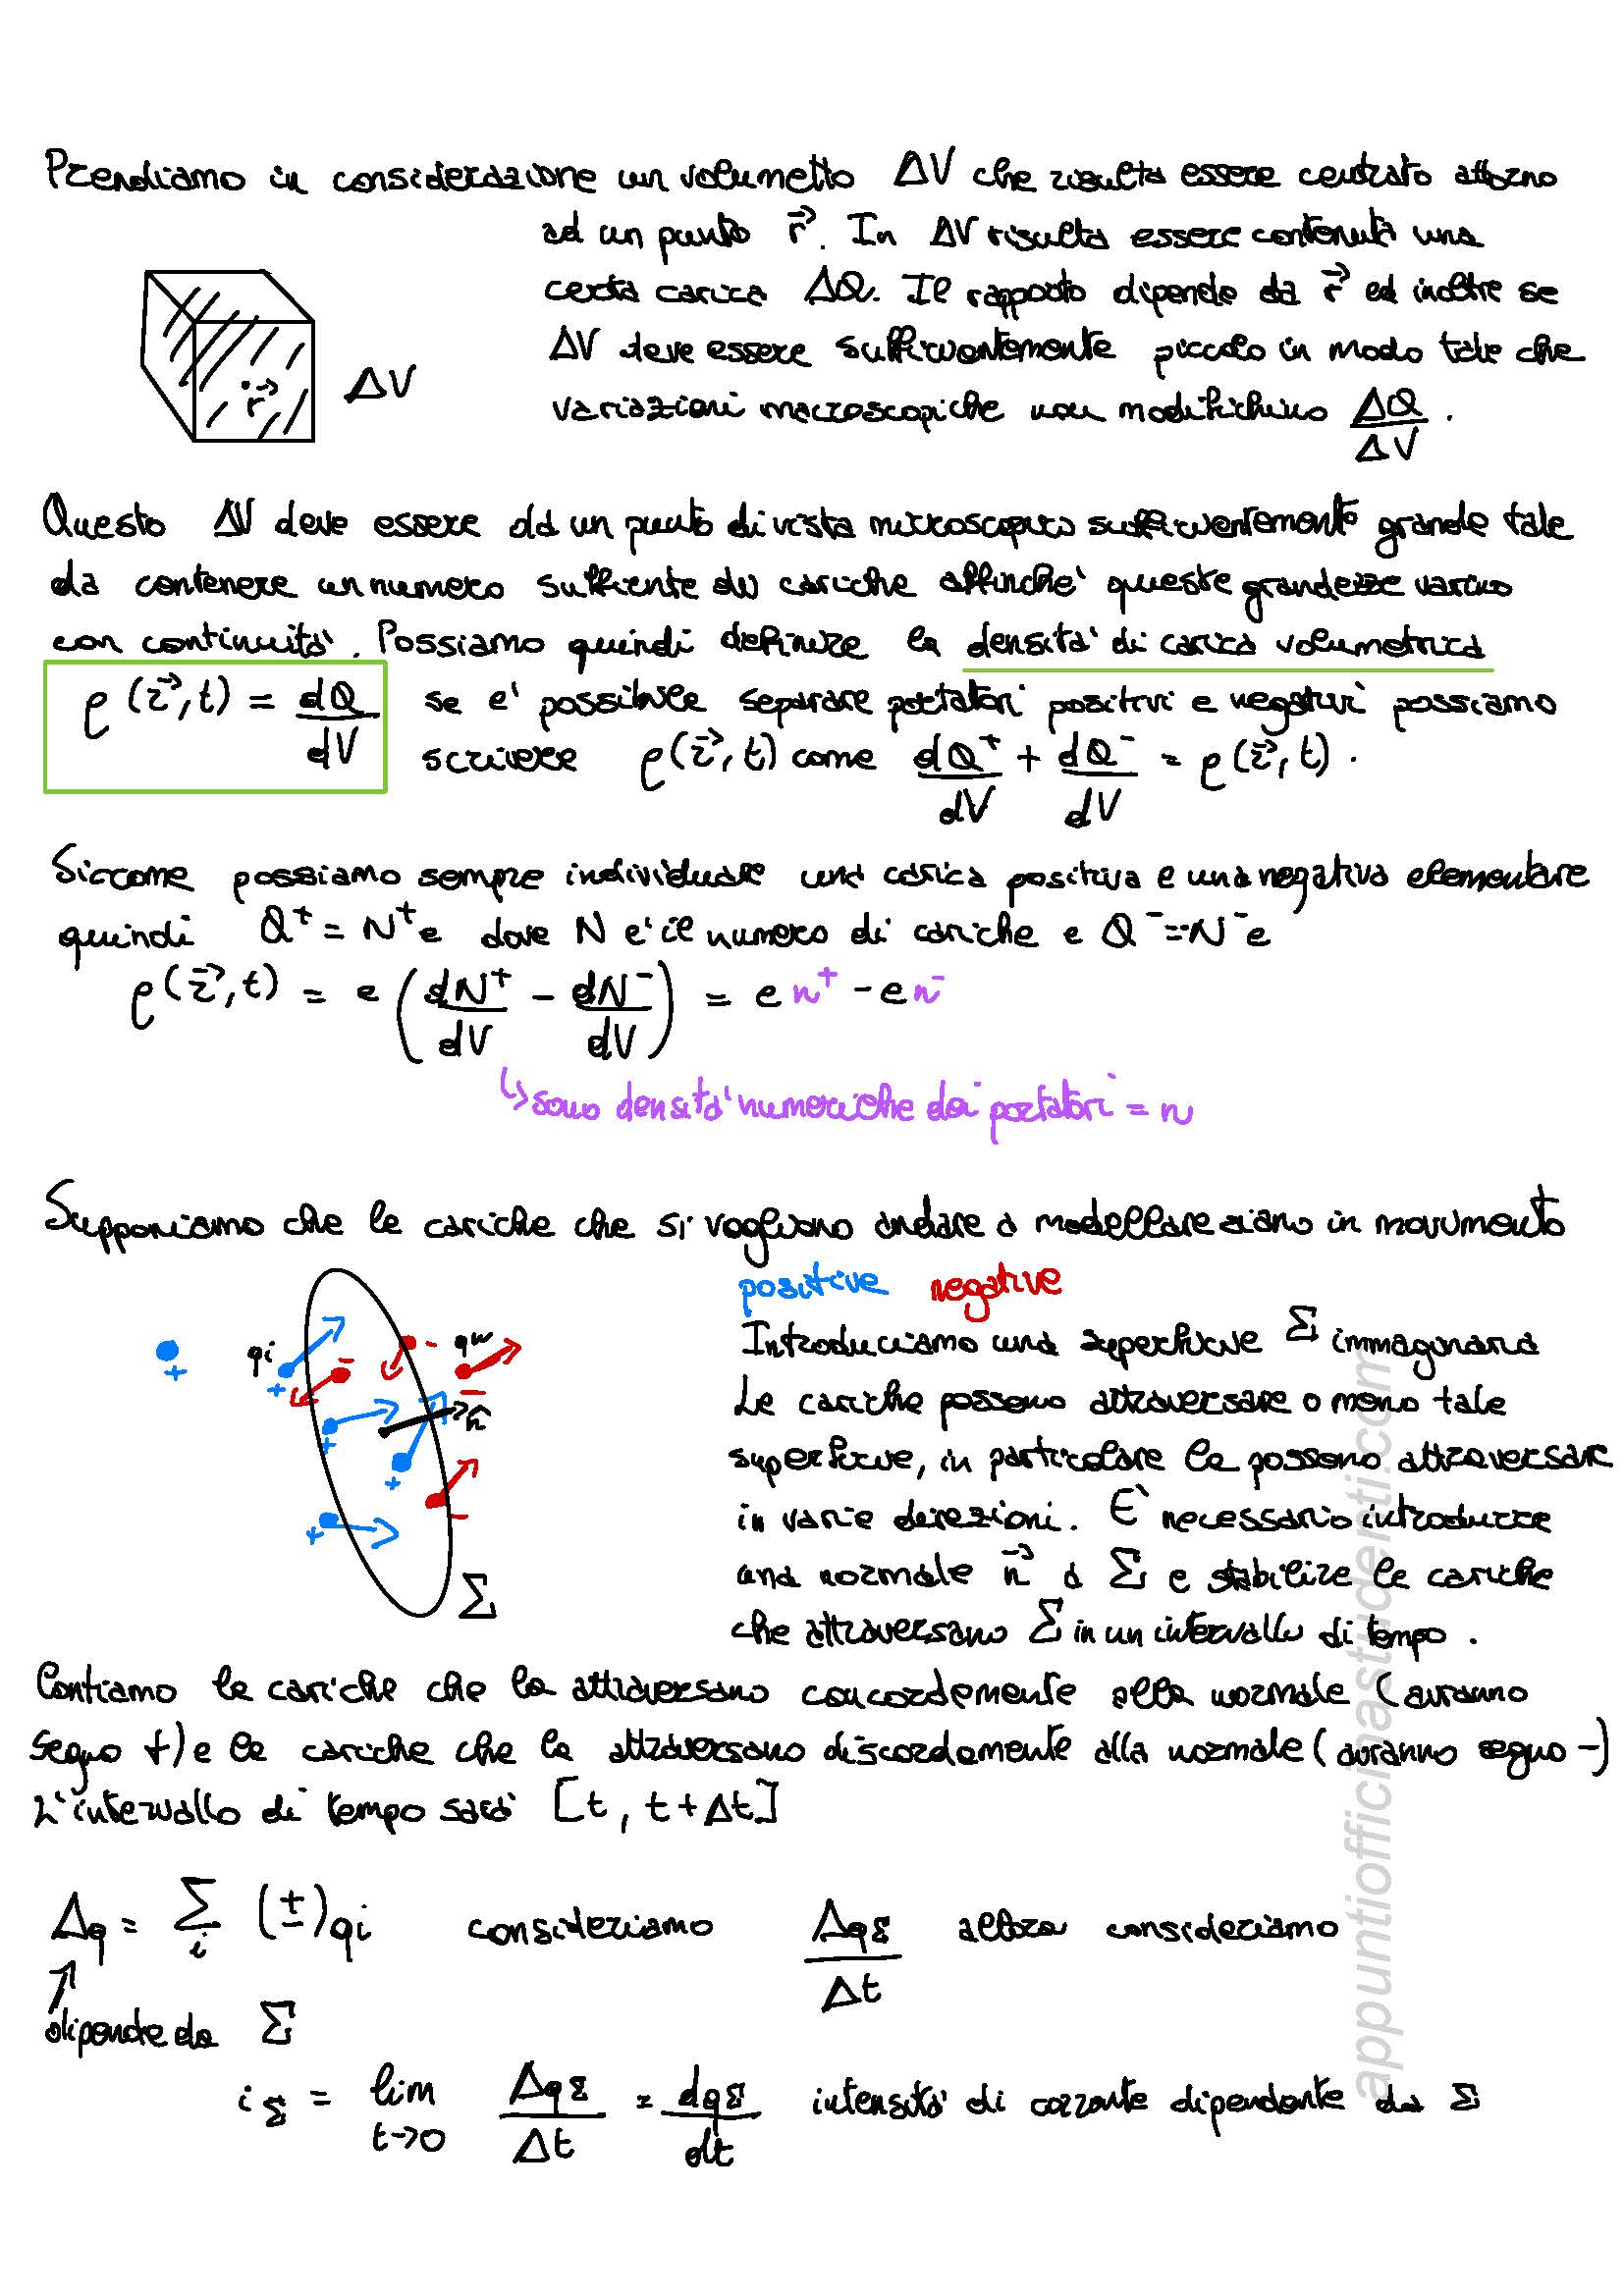 Prendiamo in considerazione un volumetto ΔV che risulta essere centrato attorno
ad un punto r⃗. In ΔV risulta essere contenuta una
certa carica ΔQ. Il rapporto dipende da r⃗ ed inoltre se
ΔV deve essere sufficientemente piccolo in modo tale che
variazioni macroscopiche non modifichino ΔQ/ΔV .
r⃗ ΔV
Questo ΔV deve essere da un punto di vista microscopico sufficientemente grande tale
da contenere un numero sufficiente di cariche affinche' queste grandezze varino
con continuita'. Possiamo quindi definire la densita' di carica volumetrica
ρ(r⃗,t) = dQ/dV se e' possibile separare portatori positivi e negativi possiamo
scrivere ρ(r⃗,t) come dQ⁺/dV + dQ⁻/dV = ρ(r⃗,t) .
Siccome possiamo sempre individuare una carica positiva e una negativa elementare
quindi Q⁺ = N⁺e dove N e' il numero di cariche e Q⁻=-N⁻e
ρ(r⃗,t) = e (dN⁺/dV - dN⁻/dV) = e n⁺ - e n⁻
↳ sono densita' numeriche dei portatori = n
Supponiamo che le cariche che si vogliono andare a modellare siano in movimento
positive negative
Introduciamo una superficie Σ immaginaria
Le cariche possono attraversare o meno tale
superficie, in particolare la possono attraversare
in varie direzioni. È necessario introdurre
una normale n⃗ a Σ e stabilire le cariche
che attraversano Σ in un intervallo di tempo .
+ qi + - - qn -
+ n̂
+ -
+ Σ
Contiamo le cariche che la attraversano concordemente alla normale (avranno
segno +) e le cariche che la attraversano discordemente alla normale (avranno segno -)
L'intervallo di tempo sara' [t, t+Δt]
Δq = Σi (±)qi consideriamo ΔqΣ/Δt allora consideriamo
dipende da Σ
iΣ = lim t→0 ΔqΣ/Δt = dqΣ/dt intensita' di corrente dipendente da Σ
appuntiofficinastudenti.com